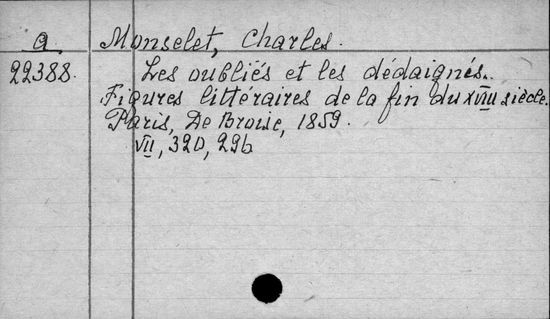 a. Monselet, Charles.
22388. Les oubliés et les dédaignés.
Figures littéraires de la fin du XVIII siècle.
Paris, De Broise, 1859.
VII, 320, 296